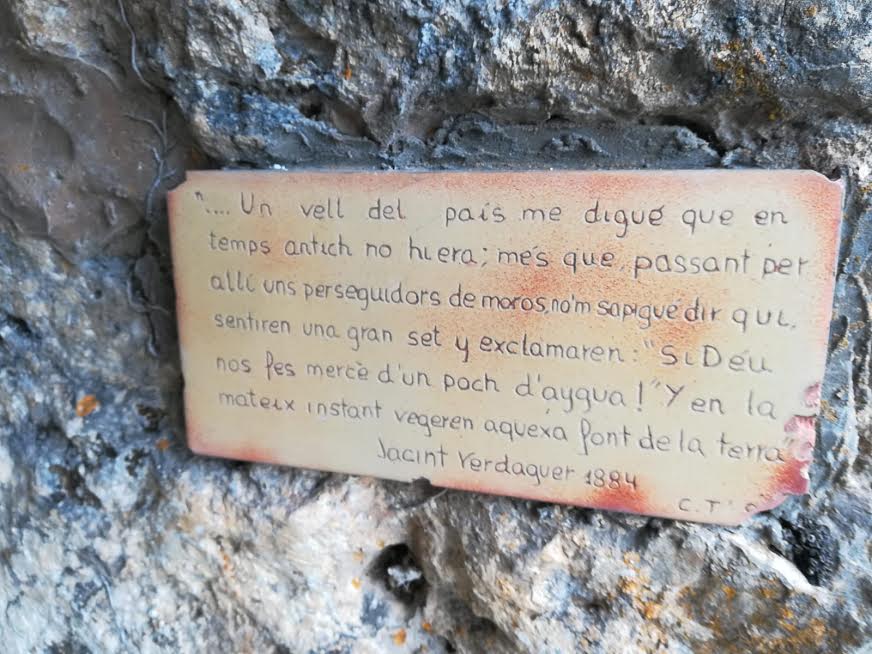 ".... Un vell del país me digué que en
temps antich no hi era; més que, passant per
allí uns perseguidors de moros, no'm sapigué dir qui,
sentiren una gran set y exclamaren: "Si Déu
nos fes mercè d'un poch d'aygua!" Y en la
mateix instant vegeren aquexa font de la terra"
Jacint Verdaguer 1884
C.T'